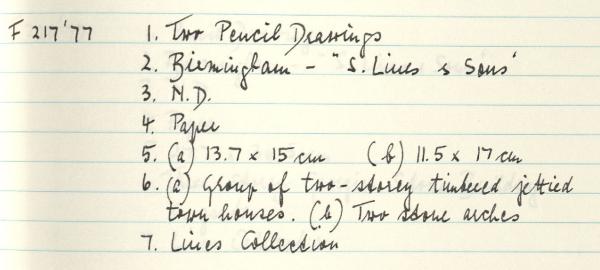 F 217'77 1. Two Pencil Drawings
2. Birmingham - "S. Lines & Sons"
3. N.D.
4. Paper
5. (a) 13.7 x 15 cm (b) 11.5 x 17 cm
6. (a) Group of two-storey timbered jettied
town houses. (b) Two stone arches
7. Lines Collection